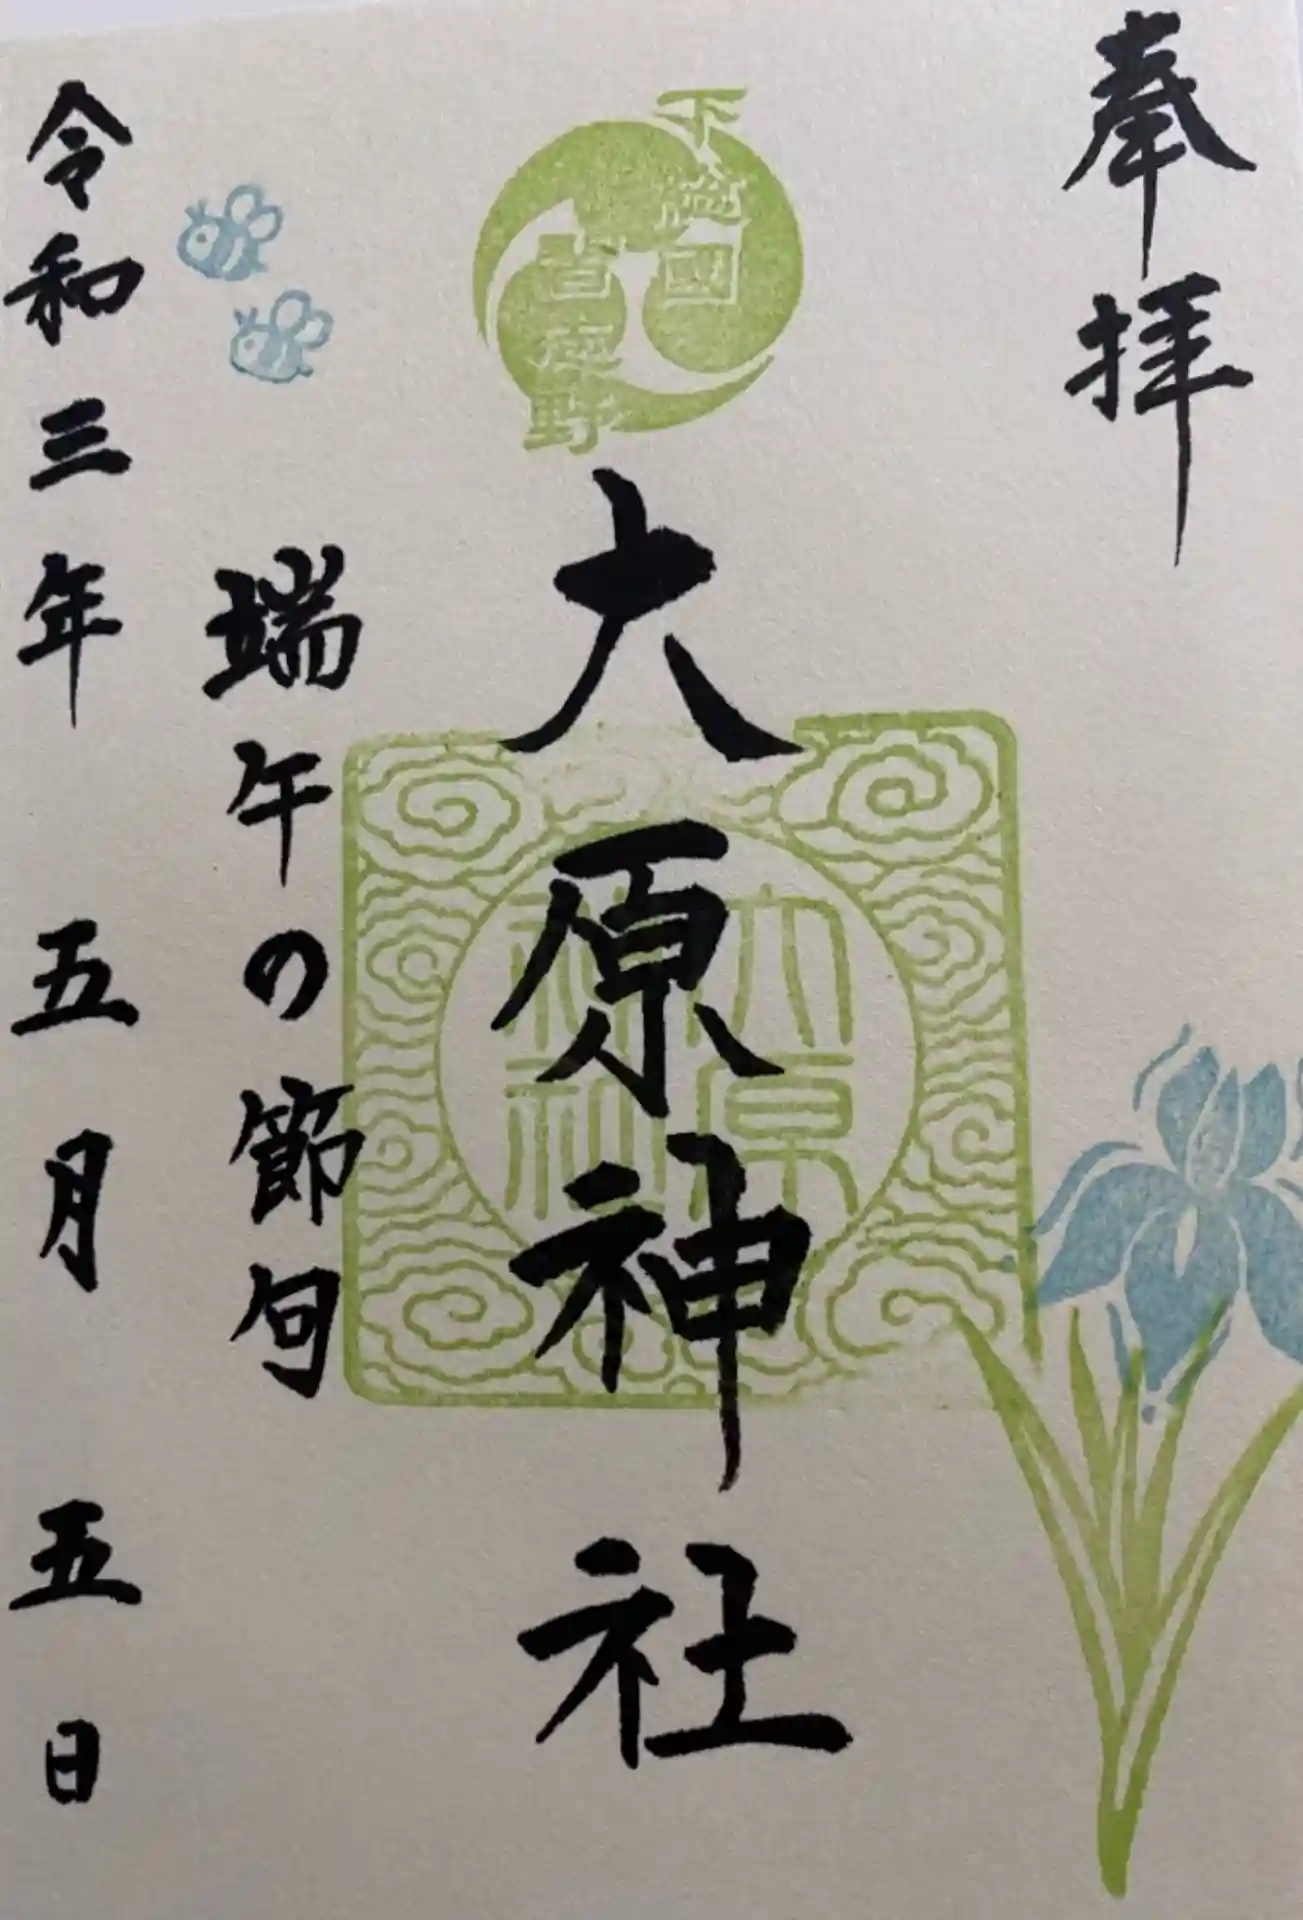 奉拝
下総國
習志野
大原神社
大原
神社
端午の節句
令和三年 五月 五日